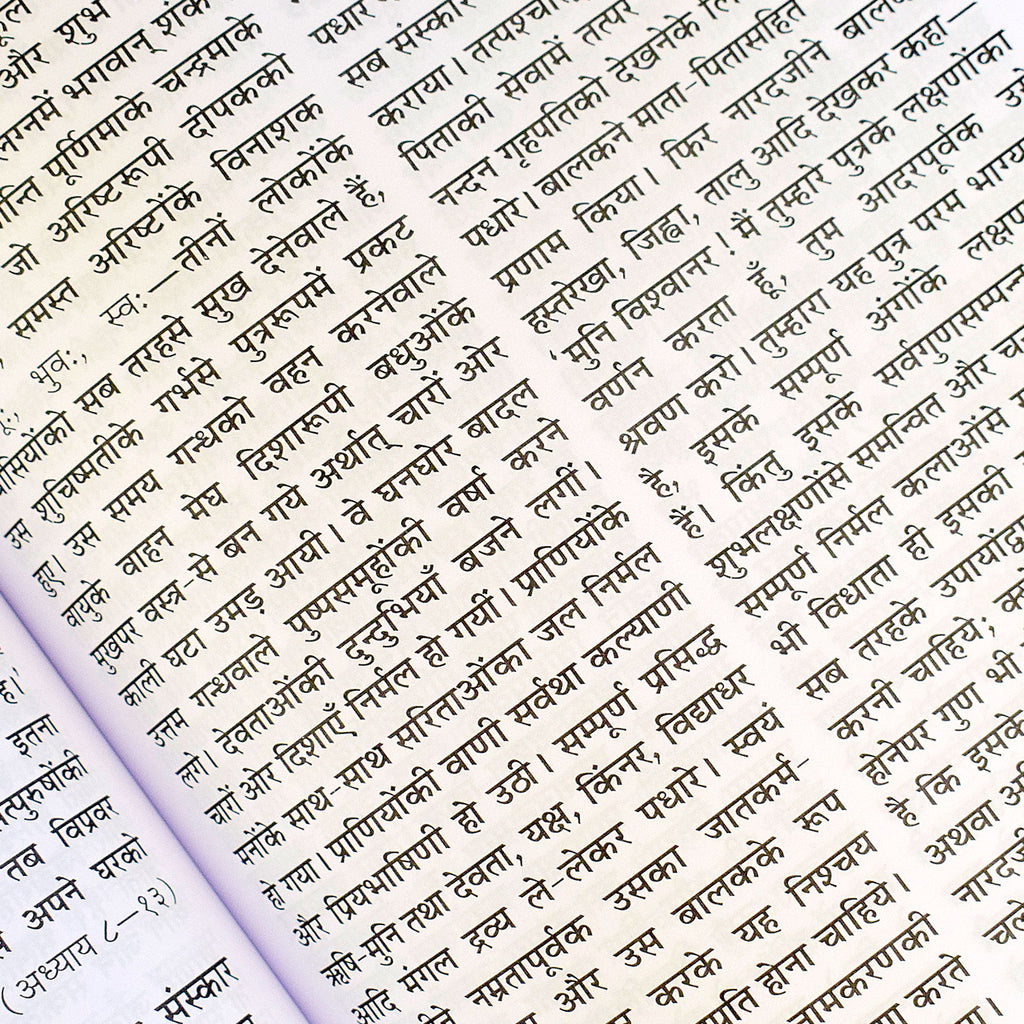 है।
इतना
त्पुरुषोंकी
तब विप्रवर
अपने घरको
(अध्याय ८—१३)
संस्कार
और शुभ
लग्नमें भगवान् शंक
पूर्णिमाके चन्द्रमाके
जो अरिष्टरूपी दीपकको
समस्त अरिष्टोंके विनाशक
भुवः, स्वः—तीनों लोकोंके
सब तरहसे सुख देनेवाले हैं,
उस शुचिष्मतीके गर्भसे पुत्ररूपमें प्रकट
हुए। उस समय गन्धको वहन करनेवाले
वायुके वाहन मेघ दिशारूपी बधुओंके
मुखपर वस्त्र-से बन गये अर्थात् चारों ओर
काली घटा उमड़ आयी। वे घनघोर बादल
उत्तम गन्धवाले पुष्पसमूहोंकी वर्षा करने
लगे। देवताओंकी दुन्दुभियाँ बजने लगीं।
चारों ओर दिशाएँ निर्मल हो गयीं। प्राणियोंके
मनोंके साथ-साथ सरिताओंका जल निर्मल
हो गया। प्राणियोंकी वाणी सर्वथा कल्याणी
और प्रियभाषिणी हो उठी। सम्पूर्ण प्रसिद्ध
ऋषि-मुनि तथा देवता, यक्ष, किंनर, विद्याधर
आदि मंगल द्रव्य ले-लेकर पधारे। स्वयं
नम्रतापूर्वक उसका जातकर्म-
और उस बालकके रूप
करके यह निश्चय
होना चाहिये।
नामकरणकी
करते
पधार
सब संस्कार
कराया। तत्पश्चा
पिताकी सेवामें तत्पर
नन्दन गृहपतिको देखनेके
पधारे। बालकने माता-पितासहित
प्रणाम किया। फिर नारदजीने
हस्तरेखा, जिह्वा, तालु आदि देखकर कहा—
'मुनि विश्वानर! मैं तुम्हारे पुत्रके लक्षणोंका
वर्णन करता हूँ, तुम आदरपूर्वक
श्रवण करो। तुम्हारा यह पुत्र परम भाग्य
है, इसके सम्पूर्ण अंगोंके लक्षण
हैं। किंतु इसके सर्वगुणसम्पन्न
शुभलक्षणोंसे समन्वित और
सम्पूर्ण निर्मल कलाओंसे
भी विधाता ही इसकी
सब तरहके उपायों
करनी चाहिये;
होनेपर गुण भी
है कि इसके
अथवा
नारदजी
चले